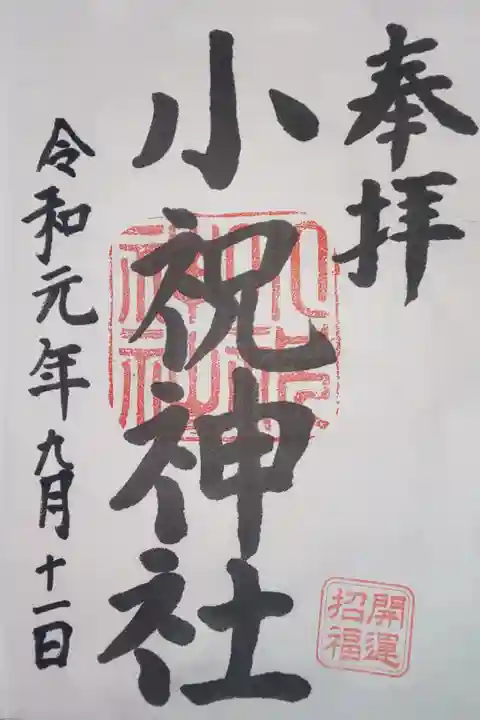 奉拝
小祝神社
令和元年九月十一日
小祝神社
開運
招福